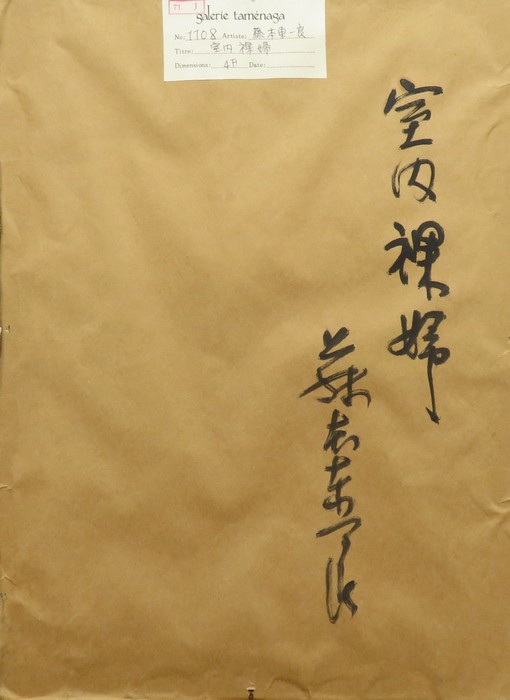 galerie taménaga
No: 1708 Artiste: 藤本東一良
Titre: 室内裸婦
Dimensions: 4P Date:
室内裸婦
藤本東一良